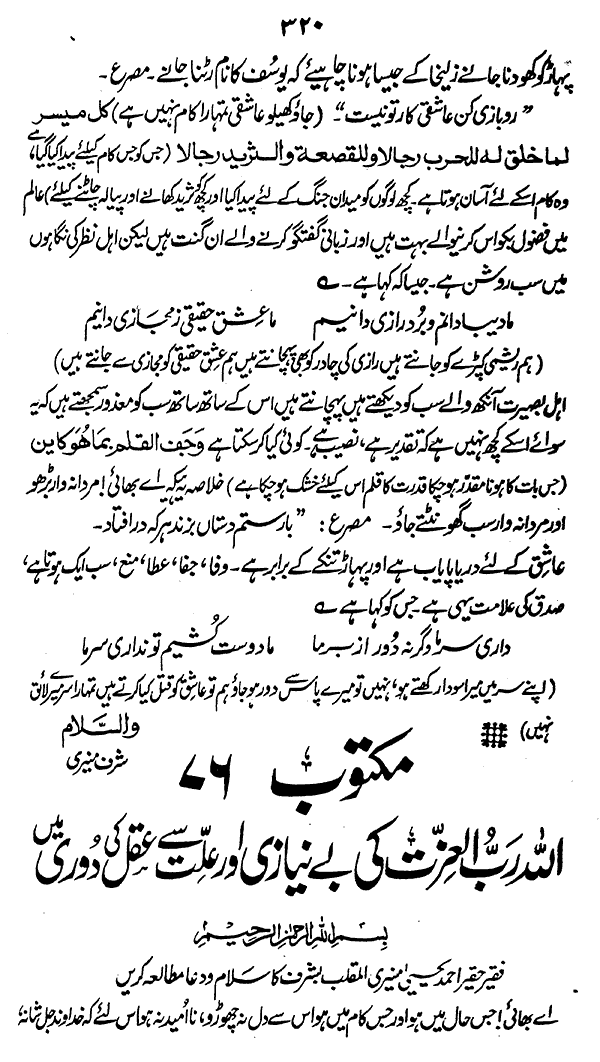 ۳۲۰
پہاڑ کو کھودنا جانے زلیخا کے جیسا ہونا چاہیئے کہ یوسف کا نام رٹنا جانے۔ مصرع۔
”رو بازی کن عاشقی کار تو نیست“۔ (جاؤ کھیلو عاشقی تمہارا کام نہیں ہے) کل میسر
لما خلق لہ للحرب رجالا وللقصعۃ والثرید رجالا (جس کو جس کام کیلئے پیدا کیا گیا ہے،
وہ کام اسکے لئے آسان ہوتا ہے۔ کچھ لوگوں کو میدان جنگ کے لئے پیدا کیا اور کچھ کو ثرید کھانے اور پیالہ چاٹنے کیلئے) عالم
میں فضول بکواس کرنیوالے بہت ہیں اور زبانی گفتگو کرنے والے ان گنت ہیں لیکن اہل نظر کی نگاہوں
میں سب روشن ہے۔ جیسا کہ کہا ہے۔ ؎
ما دیبا دانم و برد رازی دانیم ما عشق حقیقی ز مجازی دانیم
(ہم ریشمی کپڑے کو جانتے ہیں رازی کی چادر کو بھی پہچانتے ہیں ہم عشق حقیقی کو مجازی سے جانتے ہیں)
اہل بصیرت آنکھ والے سب کو دیکھتے ہیں پہچانتے ہیں اس کے ساتھ ساتھ سب کو معذور سمجھتے ہیں کہ یہ
سوائے اسکے کچھ نہیں ہے کہ تقدیر ہے، نصیب ہے۔ کوئی کیا کر سکتا ہے وَجَفَ القلم بما ھُوَ کاین
(جس بات کا ہونا مقدر ہو چکا قدرت کا قلم اس کیلئے خشک ہو چکا ہے) خلاصہ یہ کہ اے بھائی! مردانہ وار بڑھو
اور مردانہ وار سب گھونٹتے جاؤ۔ مصرع: ”با رستم دستاں بزند ہر کہ در افتاد۔
عاشق کے لئے دریا پایاب ہے اور پہاڑ تنکے کے برابر ہے۔ وفا، جفا، عطا، منع، سب ایک ہوتا ہے،
صدق کی علامت یہی ہے۔ جس کو کہا ہے ؎
داری سر ما وگرنہ دور از بر ما ما دوست کُشیم تو نداری سر ما
(اپنے سر میں میرا سودا رکھتے ہو، نہیں تو میرے پاس سے دور ہو جاؤ ہم تو عاشق کو قتل کیا کرتے ہیں تمہارا سر میرے لائق
نہیں) والسّلام
شرف منیری
مکتوب ۷۶
اللہ رَبُّ العزّت کی بے نیازی اور علّت سے عقل کی دُوری میں
بسم اللہ الرحمٰن الرحیم
فقیر حقیر احمد یحییٰ منیری المقلب بشرف کا سلام و دعا مطالعہ کریں
اے بھائی! جس حال میں ہو اور جس کام میں ہو اس سے دل نہ چھوڑو، نا اُمید نہ ہو اس لئے کہ خداوند جل شانہ،